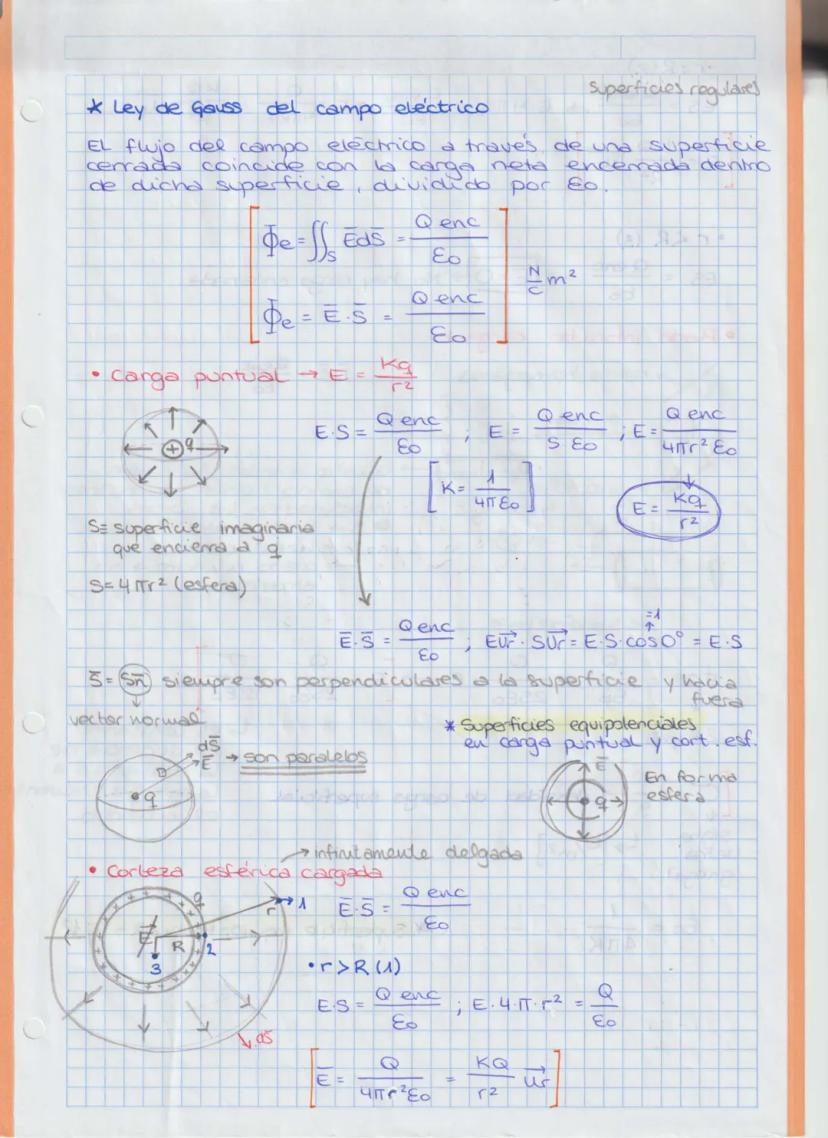 Superficies regulares
* Ley de Gauss del campo eléctrico
El flujo del campo eléctrico a través de una superficie
cerrada coincide con la carga neta encerrada dentro
de dicha superficie, dividido por εo.
Φe = ∬s E̅dS̅ = Q enc / εo
N/C m²
Φe = E̅ · S̅ = Q enc / εo
• Carga puntual → E = Kq / r²
q
E·S = Q enc / εo ; E = Q enc / S εo ; E = Q enc / 4πr² εo
[K = 1 / 4πεo]
E = Kq / r²
S ≡ superficie imaginaria
que encierra a q
S = 4πr² (esfera)
=1
E̅·S̅ = Q enc / εo ; E u⃗r · S u⃗r = E·S·cos0° = E·S
S̅ = Sn̅ siempre son perpendiculares a la superficie y hacia
fuera
vector normal
* Superficies equipotenciales
en carga puntual y cort. esf.
dS̅
E̅ → son paralelos
q
E̅
q
En forma
esfera
→ infinitamente delgada
• Corteza esférica cargada
q
r
1
E̅
R
2
3
dS̅
E̅·S̅ = Q enc / εo
• r > R (1)
E·S = Q enc / εo ; E·4·π·r² = Q / εo
[E̅ = Q / 4πr²εo = KQ / r² u⃗r]